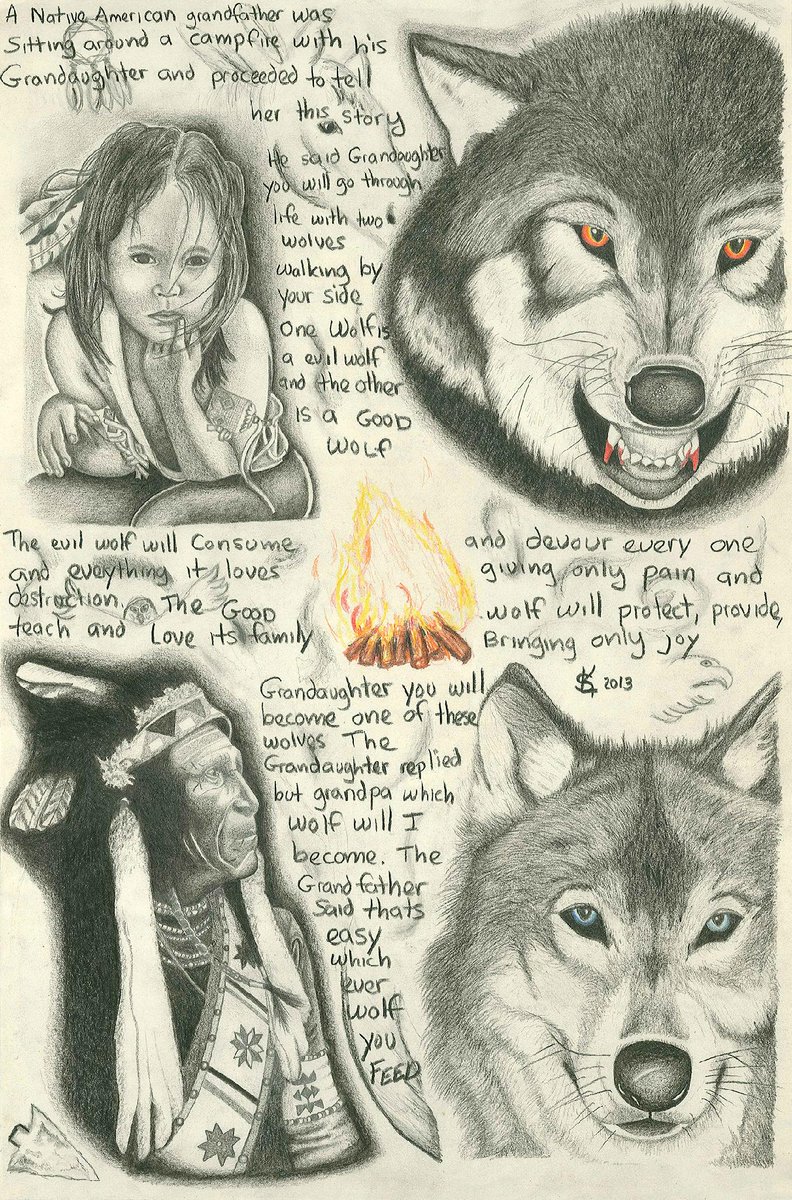 A Native American grandfather was
Sitting around a campfire with his
Grandaughter and proceeded to tell
her this story
He said Grandaughter
you will go through
life with two
wolves
walking by
your side
One Wolf is
a evil wolf
and the other
Is a GOOD
WOLF
The evil wolf will Consume and devour every one
and eveything it loves giving only pain and
destruction. The GOOD wolf will protect, provide,
teach and Love its family Bringing only joy
2013
Grandaughter you will
become one of these
wolves The
Grandaughter replied
but grandpa which
wolf will I
become. The
Grandfather
Said thats
easy
which
ever
wolf
you
FEED